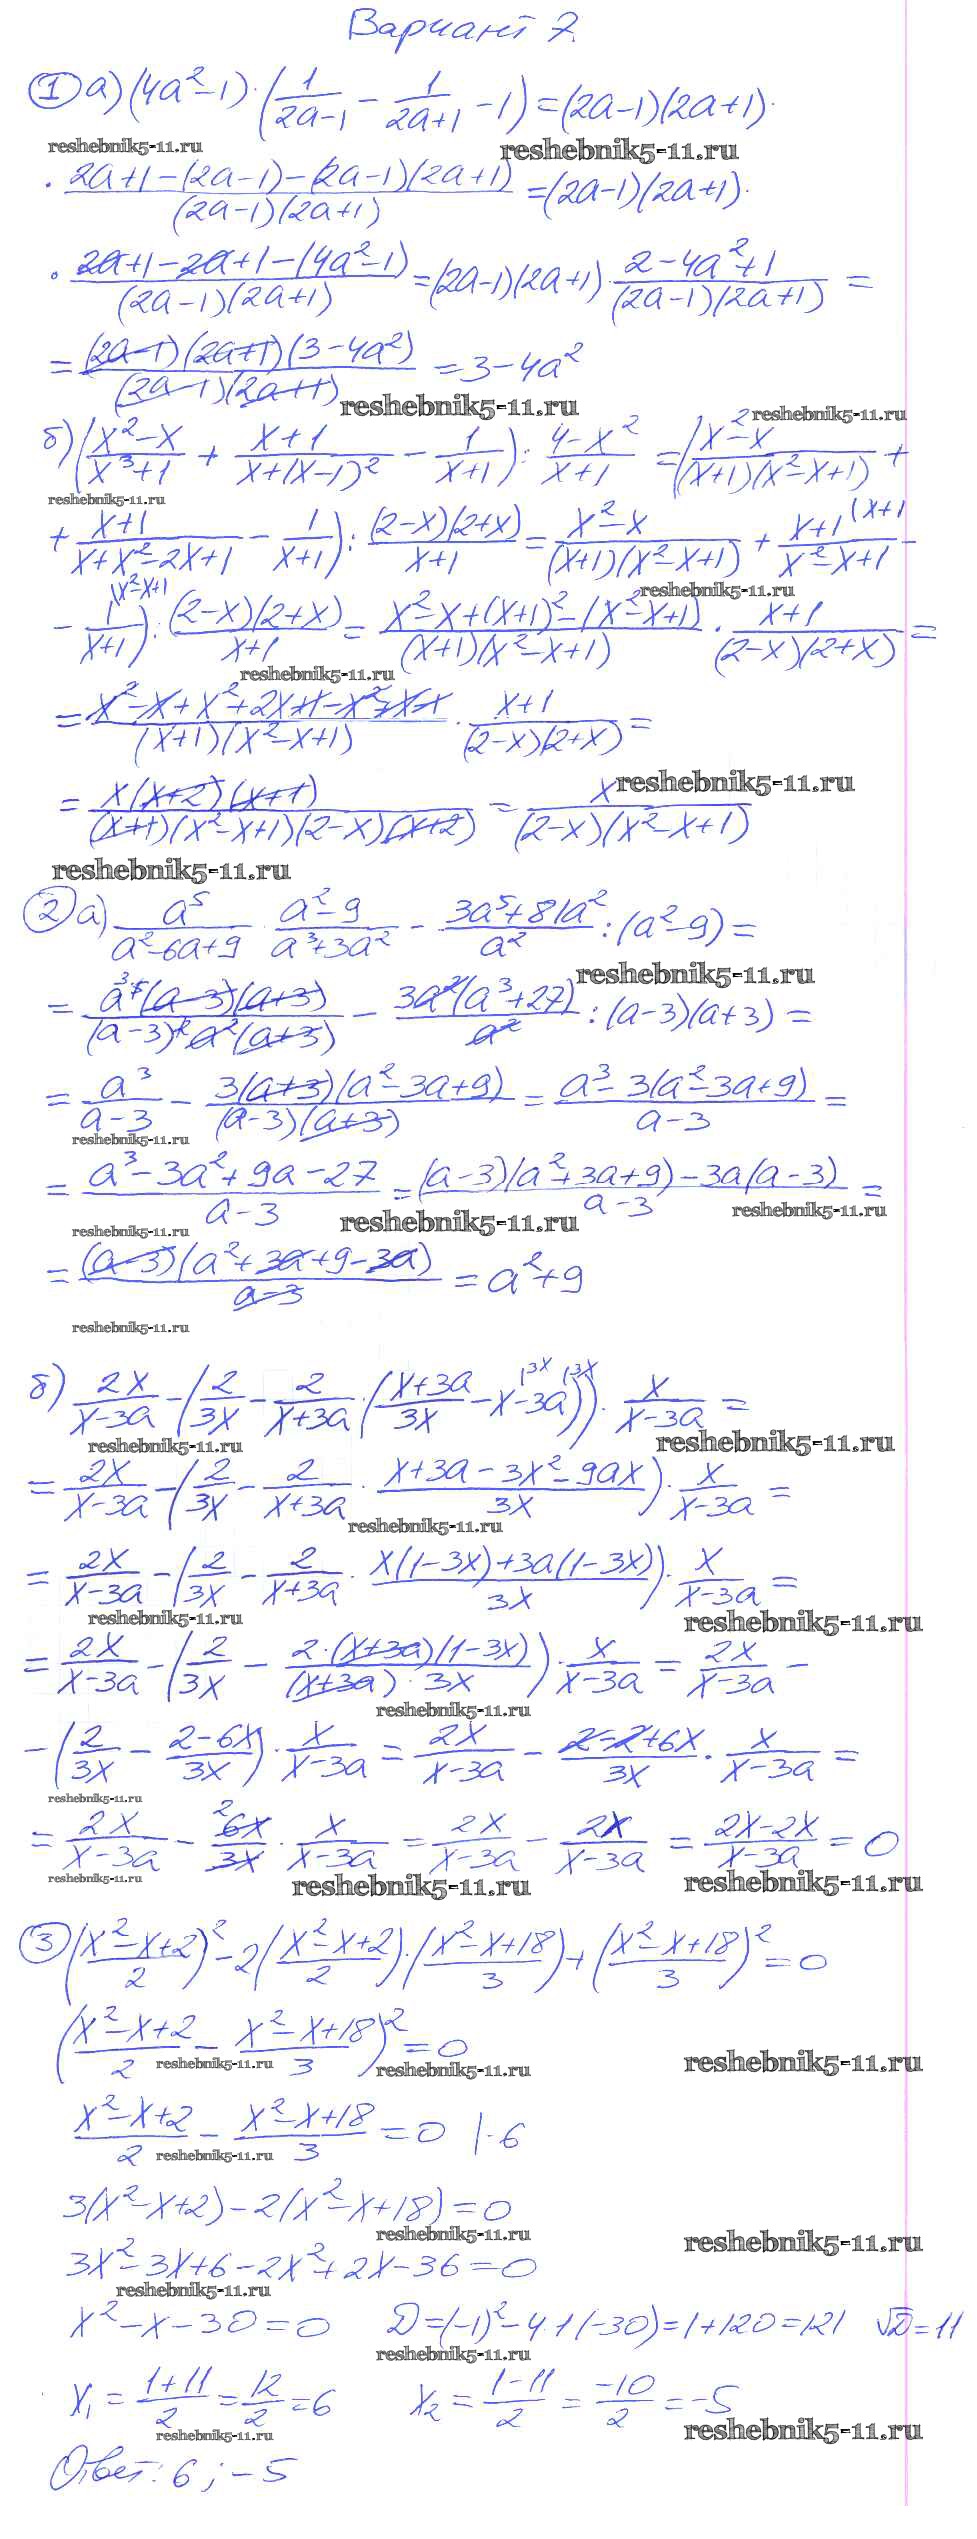 Вариант 7.
① а) (4a² − 1) · (1/(2a−1) − 1/(2a+1) − 1) = (2a−1)(2a+1)·
reshebnik5-11.ru reshebnik5-11.ru
· (2a+1−(2a−1)−(2a−1)(2a+1))/((2a−1)(2a+1)) = (2a−1)(2a+1)·
· (2a+1−2a+1−(4a²−1))/((2a−1)(2a+1)) = (2a−1)(2a+1) · (2−4a²+1)/((2a−1)(2a+1)) =
= ((2a−1)(2a+1)(3−4a²))/((2a−1)(2a+1)) = 3−4a²
reshebnik5-11.ru reshebnik5-11.ru
б) ((x²−x)/(x³+1) + (x+1)/(x+(x−1)²) − 1/(x+1)) : (4−x²)/(x+1) = ((x²−x)/((x+1)(x²−x+1)) +
reshebnik5-11.ru
+ (x+1)/(x+x²−2x+1) − 1/(x+1)) : ((2−x)(2+x))/(x+1) = (x²−x)/((x+1)(x²−x+1)) + (x+1)/(x²−x+1) (x+1 −
reshebnik5-11.ru
− 1/(x+1) (x²−x+1) : ((2−x)(2+x))/(x+1) = (x²−x+(x+1)²−(x²−x+1))/((x+1)(x²−x+1)) · (x+1)/((2−x)(2+x)) =
reshebnik5-11.ru
= (x²−x+x²+2x+1−x²+x−1)/((x+1)(x²−x+1)) · (x+1)/((2−x)(2+x)) =
= (x(x+2)(x+1))/((x+1)(x²−x+1)(2−x)(x+2)) = x/((2−x)(x²−x+1))
reshebnik5-11.ru
reshebnik5-11.ru
② а) a⁵/(a²−6a+9) · (a²−9)/(a³+3a²) − (3a⁵+81a²)/a² : (a²−9) =
reshebnik5-11.ru
= (a⁵ ³(a−3)(a+3))/((a−3)² a²(a+3)) − (3a²(a³+27))/a² : (a−3)(a+3) =
= a³/(a−3) − (3(a+3)(a²−3a+9))/((a−3)(a+3)) = (a³−3(a²−3a+9))/(a−3) =
reshebnik5-11.ru
= (a³−3a²+9a−27)/(a−3) = ((a−3)(a²+3a+9)−3a(a−3))/(a−3) =
reshebnik5-11.ru reshebnik5-11.ru reshebnik5-11.ru
= ((a−3)(a²+3a+9−3a))/(a−3) = a²+9
reshebnik5-11.ru
б) 2x/(x−3a) − (2/3x − 2/(x+3a) · ((x+3a)/3x − x (3x − 3a (3x)) · x/(x−3a) =
reshebnik5-11.ru reshebnik5-11.ru
= 2x/(x−3a) − (2/3x − 2/(x+3a) · (x+3a−3x²−9ax)/3x) · x/(x−3a) =
reshebnik5-11.ru
= 2x/(x−3a) − (2/3x − 2/(x+3a) · (x(1−3x)+3a(1−3x))/3x) · x/(x−3a) =
reshebnik5-11.ru reshebnik5-11.ru
= 2x/(x−3a) − (2/3x − (2·(x+3a)(1−3x))/((x+3a)·3x)) · x/(x−3a) = 2x/(x−3a) −
reshebnik5-11.ru
− (2/3x − (2−6x)/3x) · x/(x−3a) = 2x/(x−3a) − (2−2+6x)/3x · x/(x−3a) =
reshebnik5-11.ru
= 2x/(x−3a) − 6x ²/3x · x/(x−3a) = 2x/(x−3a) − 2x/(x−3a) = (2x−2x)/(x−3a) = 0
reshebnik5-11.ru reshebnik5-11.ru reshebnik5-11.ru
③ ((x²−x+2)/2)² − 2((x²−x+2)/2)·((x²−x+18)/3) + ((x²−x+18)/3)² = 0
((x²−x+2)/2 − (x²−x+18)/3)² = 0
reshebnik5-11.ru reshebnik5-11.ru reshebnik5-11.ru
(x²−x+2)/2 − (x²−x+18)/3 = 0 |·6
reshebnik5-11.ru
3(x²−x+2) − 2(x²−x+18) = 0
reshebnik5-11.ru reshebnik5-11.ru
3x²−3x+6−2x²+2x−36=0
reshebnik5-11.ru
x²−x−30=0 D=(−1)²−4·1(−30)=1+120=121 √D=11
reshebnik5-11.ru
x₁ = (1+11)/2 = 12/2 = 6 x₂ = (1−11)/2 = −10/2 = −5
reshebnik5-11.ru reshebnik5-11.ru
Ответ: 6; −5